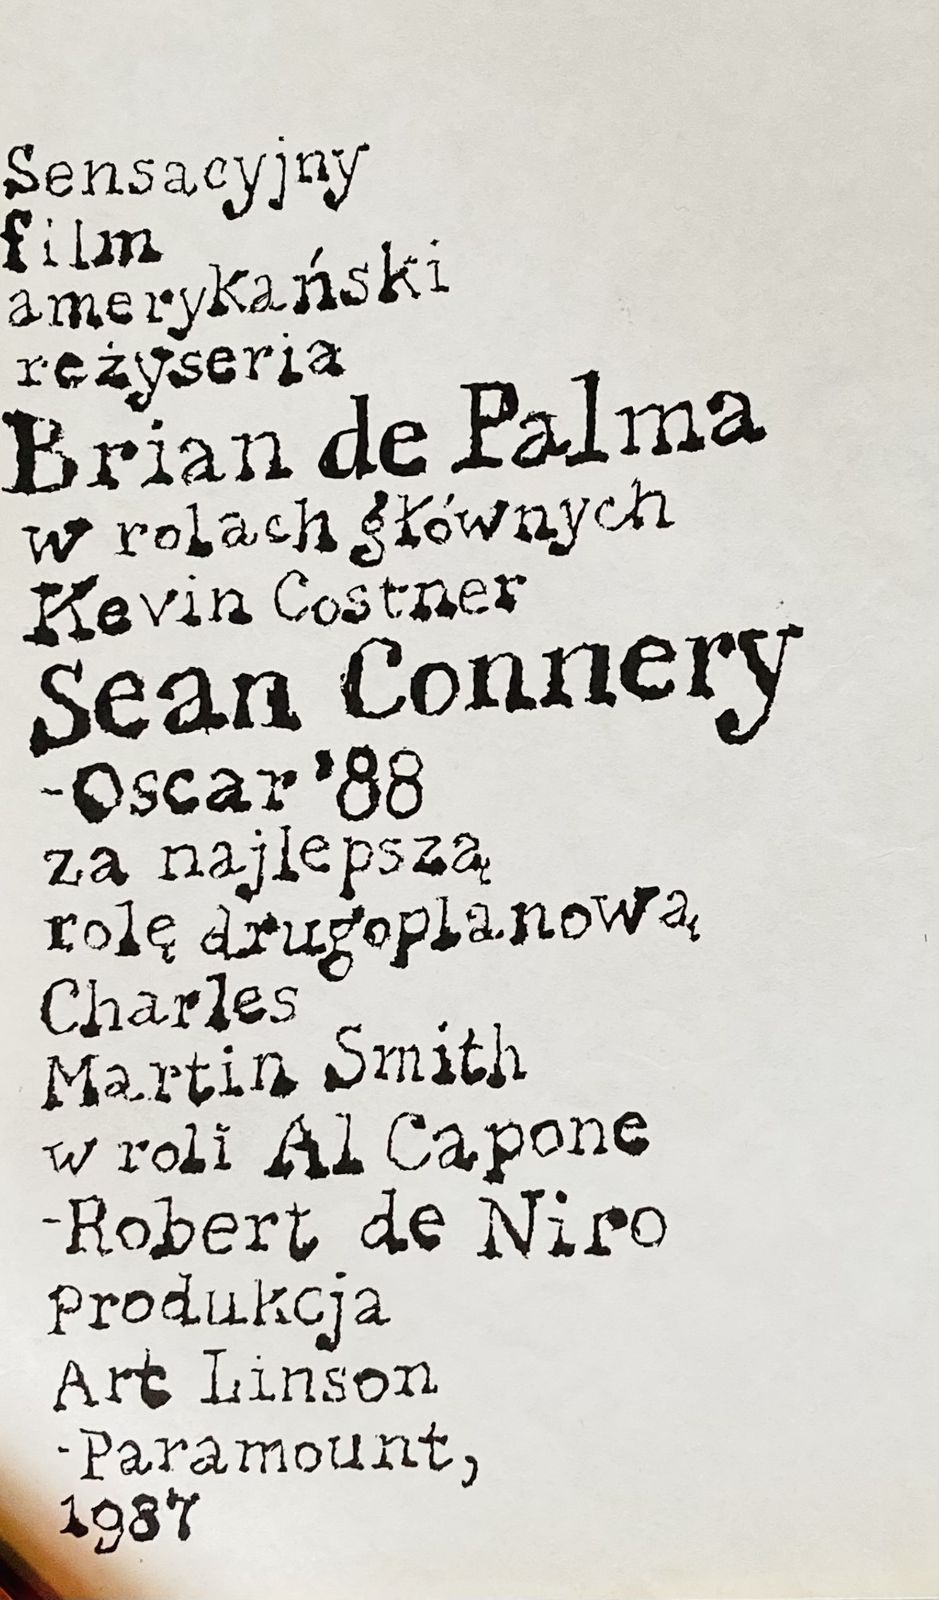 Sensacyjny
film
amerykański
reżyseria
Brian de Palma
w rolach głównych
Kevin Costner
Sean Connery
-Oscar '88
za najlepszą
rolę drugoplanową
Charles
Martin Smith
w roli Al Capone
-Robert de Niro
produkcja
Art Linson
-Paramount,
1987